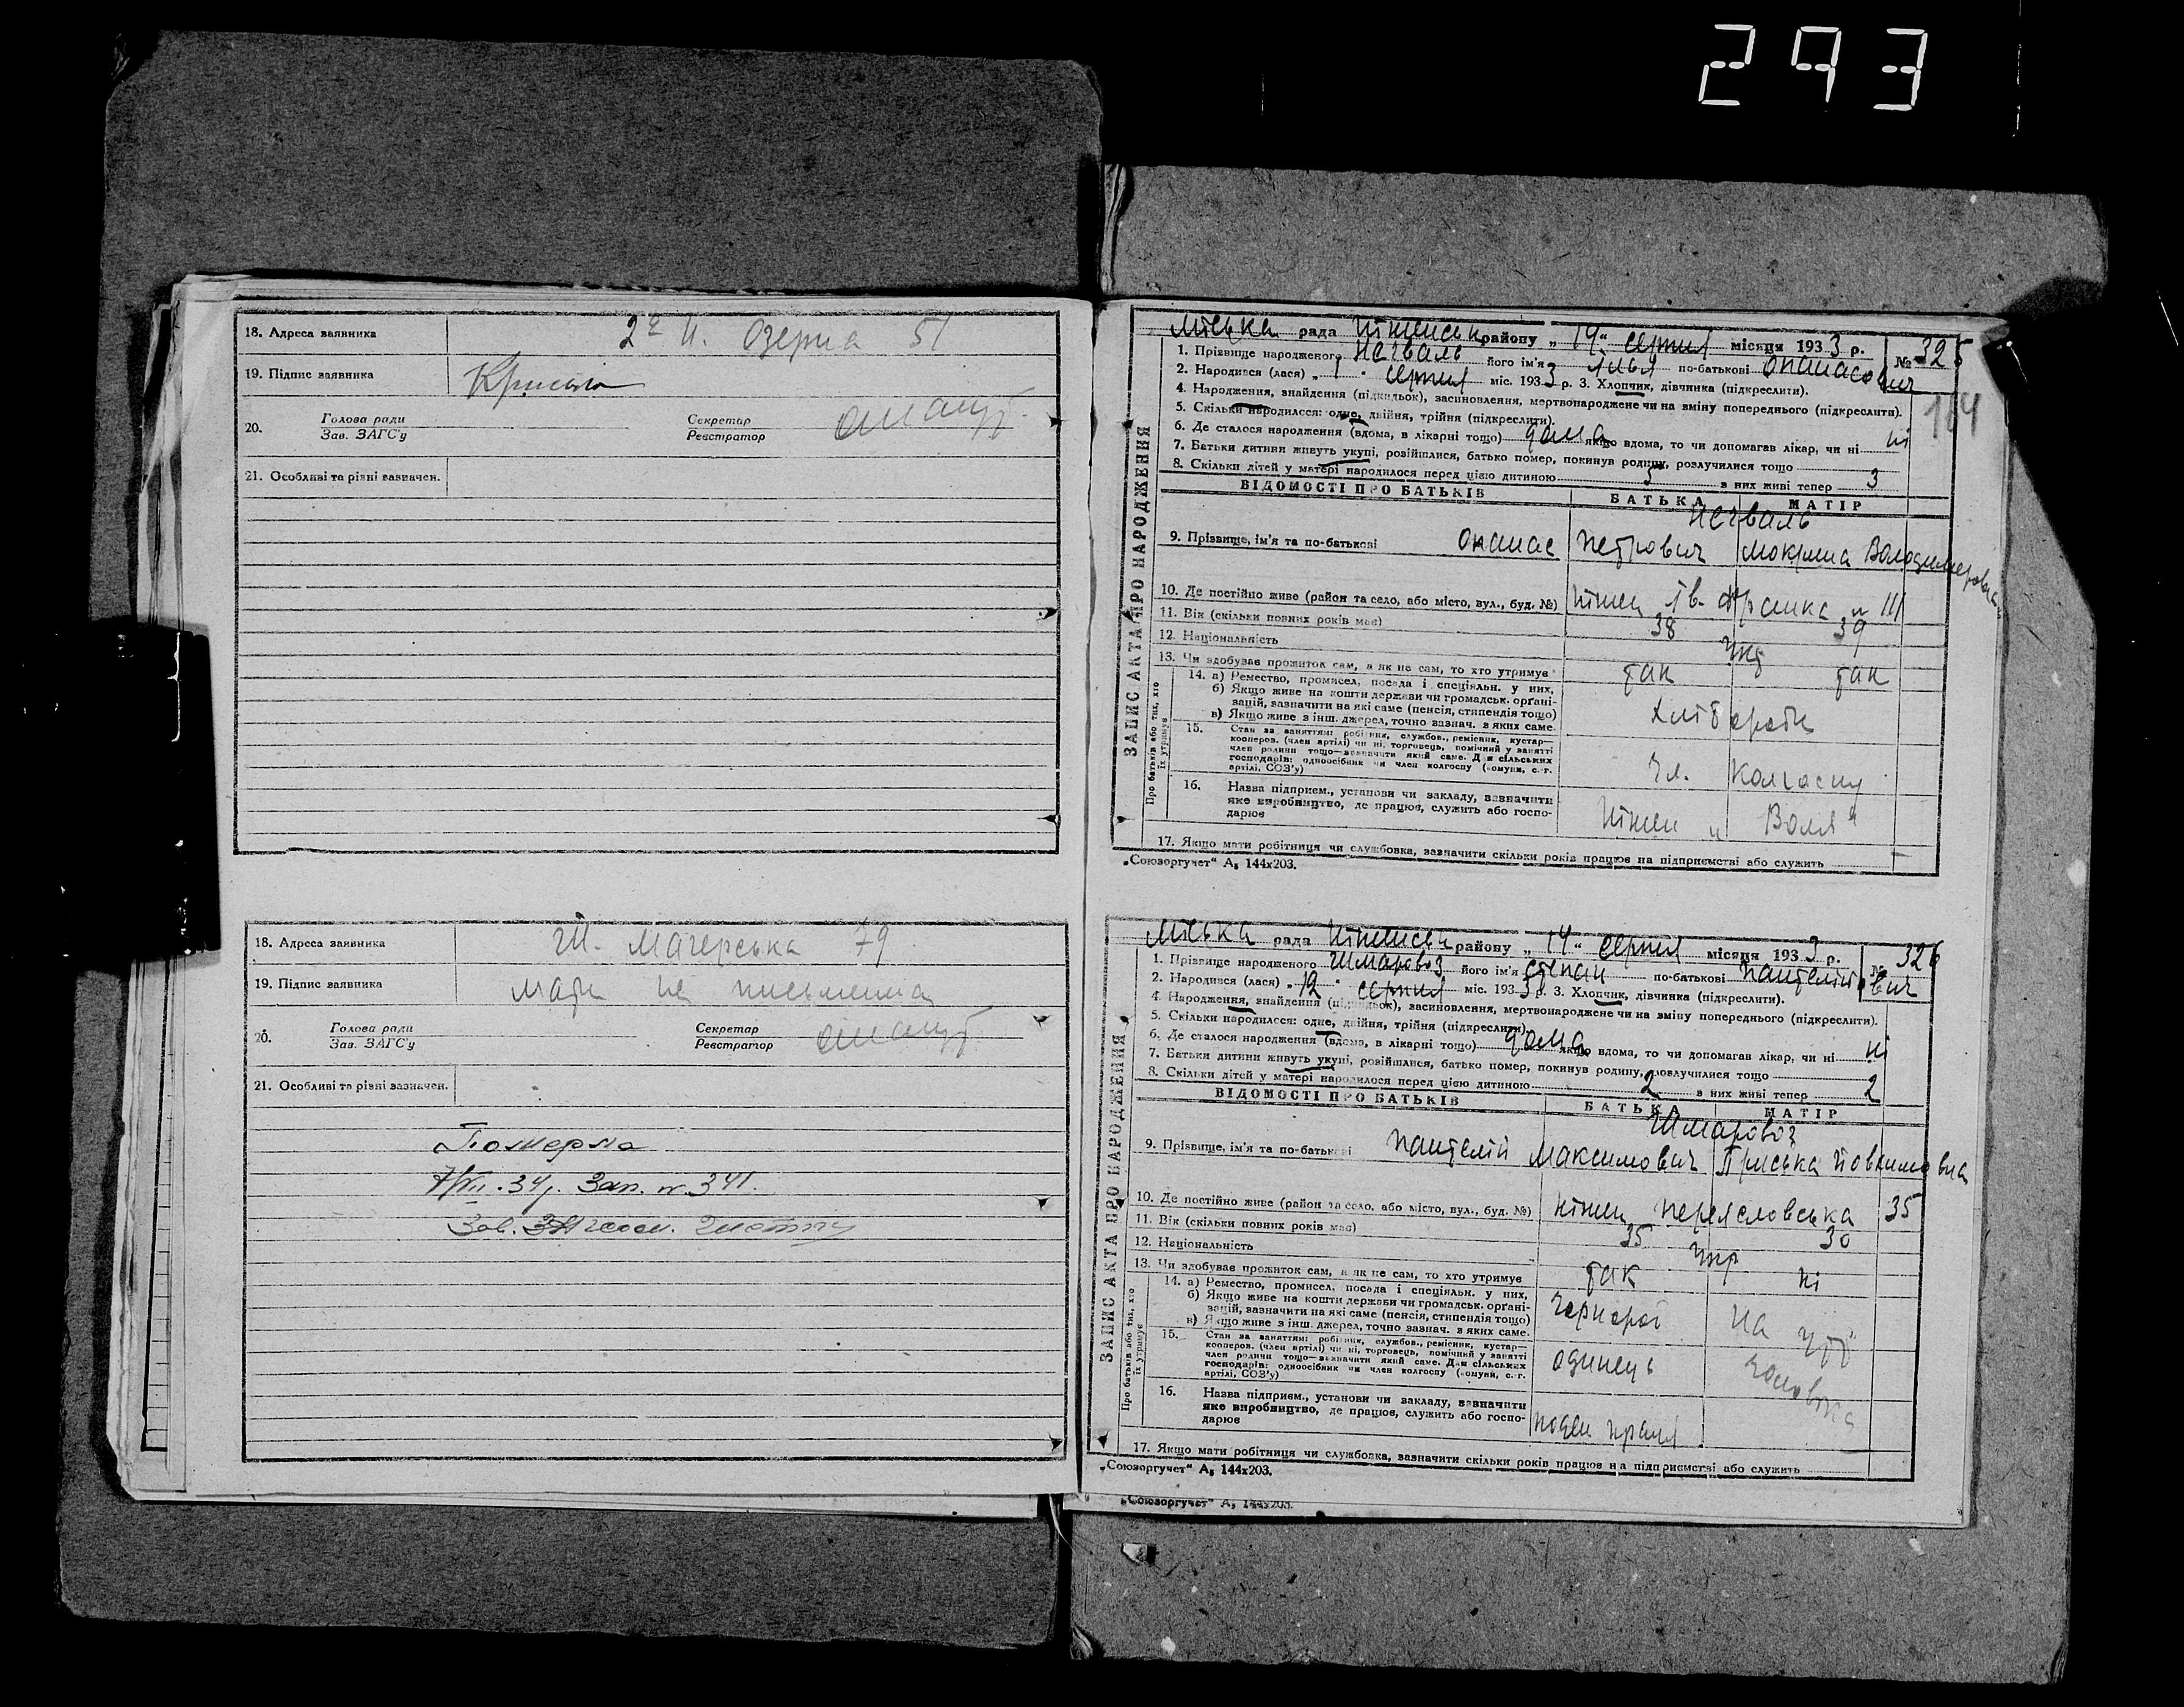 293
18. Адреса заявника 2га Н. Озерна 51
19. Підпис заявника
20. Голова ради Секретар
Зав. ЗАГС'у Реєстратор
21. Особливі та різні зазначен.
18. Адреса заявника Магерська 79
19. Підпис заявника мати не письменна
20. Голова ради Секретар
Зав. ЗАГС'у Реєстратор
21. Особливі та різні зазначен.
Померла
34р. Зап. № 341.
Зав.
ЗАПИС АКТА ПРО НАРОДЖЕННЯ
Міська рада Ніженськ району „14“ серпня місяця 1933 р. № 325
1. Прізвище народженого Негваль його ім'я Ілья по-батькові Опанасович
2. Народився (лася) „1“ серпня міс. 1933 р. 3. Хлопчик, дівчинка (підкреслити).
164
4. Народження, знайдення (підкидьок), засиновлення, мертвонароджене чи на зміну попереднього (підкреслити).
5. Скільки народилося: одне, двійня, трійня (підкреслити).
6. Де сталося народження (вдома, в лікарні тощо) дома якщо вдома, то чи допомагав лікар, чи ні ні
7. Батьки дитини живуть укупі, розійшлися, батько помер, покинув родину, розлучилися тощо
8. Скільки дітей у матері народилося перед цією дитиною 5 з них живі тепер 3
ВІДОМОСТІ ПРО БАТЬКІВ БАТЬКА МАТІР
Негваль
9. Прізвище, ім'я та по-батькові Опанас Петрович Мокрина Володимеровна
10. Де постійно живе (район та село, або місто, вул., буд. №) Ніжен Ів. Франка № 111
11. Вік (скільки повних років має) 38 39
12. Національність укр
13. Чи здобуває прожиток сам, а як не сам, то хто утримує так так
Про батьків або тих, хто їх утримує
14. а) Ремество, промисел, посада і спеціяльн. у них,
б) Якщо живе на кошти держави чи громадськ. органі-
зацій, зазначити на які саме (пенсія, стипендія тощо)
в) Якщо живе з інш. джерел, точно зазнач. з яких саме.
Хлібороби
15. Стан за заняттям: робітник, службов., ремісник, кустар—
кооперов. (член артілі) чи ні, торговець, помічний у занятті
член родини тощо—зазначити який саме. Для сільських
господарів: одноосібник чи член колгоспу (комуни, с.-г.
артілі, СОЗ'у)
чл. колгоспу
16. Назва підприєм., установи чи закладу, зазначити
яке виробництво, де працює, служить або госпо-
дарює
Ніжен „Воля“
17. Якщо мати робітниця чи службовка, зазначити скільки років працює на підприємстві або служить
„Союзоргучет“ А₅ 144х203.
ЗАПИС АКТА ПРО НАРОДЖЕННЯ
Міська рада Ніженськ району „14“ серпня місяця 1933 р. № 326
1. Прізвище народженого Шмаровоз його ім'я Степан по-батькові Пантелійович
2. Народився (лася) „12“ серпня міс. 1933 р. 3. Хлопчик, дівчинка (підкреслити).
4. Народження, знайдення (підкидьок), засиновлення, мертвонароджене чи на зміну попереднього (підкреслити).
5. Скільки народилося: одне, двійня, трійня (підкреслити).
6. Де сталося народження (вдома, в лікарні тощо) дома якщо вдома, то чи допомагав лікар, чи ні ні
7. Батьки дитини живуть укупі, розійшлися, батько помер, покинув родину, розлучилися тощо
8. Скільки дітей у матері народилося перед цією дитиною 2 з них живі тепер 2
ВІДОМОСТІ ПРО БАТЬКІВ БАТЬКА МАТІР
Шмаровоз
9. Прізвище, ім'я та по-батькові Пантелій Максимович Приська Йовхимовна
10. Де постійно живе (район та село, або місто, вул., буд. №) Ніжен Переясловська 35
11. Вік (скільки повних років має) 35 30
12. Національність укр
13. Чи здобуває прожиток сам, а як не сам, то хто утримує так ні
Про батьків або тих, хто їх утримує
14. а) Ремество, промисел, посада і спеціяльн. у них,
б) Якщо живе на кошти держави чи громадськ. органі-
зацій, зазначити на які саме (пенсія, стипендія тощо)
в) Якщо живе з інш. джерел, точно зазнач. з яких саме.
чорнороб на ут
15. Стан за заняттям: робітник, службов., ремісник, кустар—
кооперов. (член артілі) чи ні, торговець, помічний у занятті
член родини тощо—зазначити який саме. Для сільських
господарів: одноосібник чи член колгоспу (комуни, с.-г.
артілі, СОЗ'у)
одинець чоловіка
16. Назва підприєм., установи чи закладу, зазначити
яке виробництво, де працює, служить або госпо-
дарює
поден праця
17. Якщо мати робітниця чи службовка, зазначити скільки років працює на підприємстві або служить
„Союзоргучет“ А₅ 144х203.
„Союзоргучет“ А₅ 144х203.